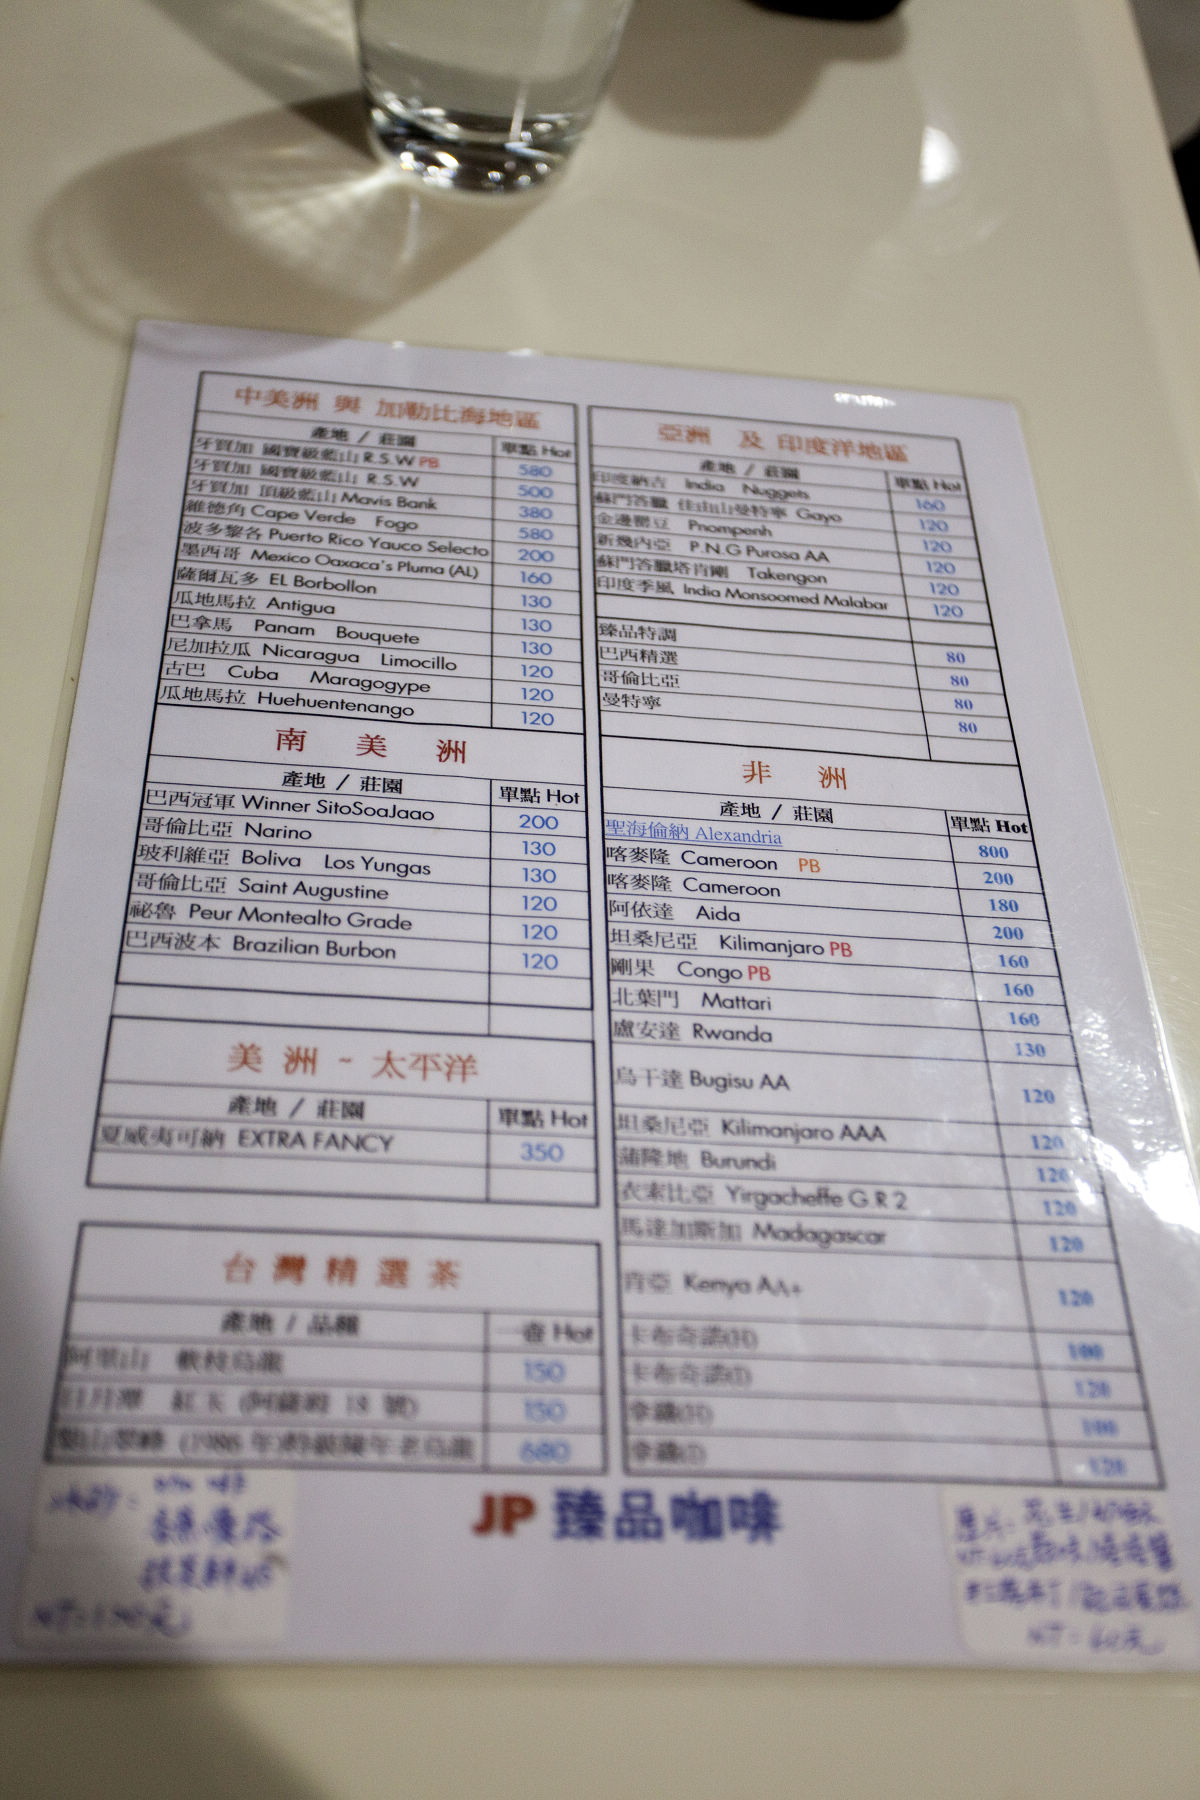 中美洲 與 加勒比海地區
產地 / 莊園 單點 Hot
牙買加 國寶級藍山 R.S.W PB 580
牙買加 國寶級藍山 R.S.W 500
牙買加 頂級藍山 Mavis Bank 380
維德角 Cape Verde Fogo 580
波多黎各 Puerto Rico Yauco Selecto 200
墨西哥 Mexico Oaxaca's Pluma (AL) 160
薩爾瓦多 EL Borbollon 130
瓜地馬拉 Antigua 130
巴拿馬 Panam Bouquete 130
尼加拉瓜 Nicaragua Limocillo 120
古巴 Cuba Maragogype 120
瓜地馬拉 Huehuentenango 120
南 美 洲
產地 / 莊園 單點 Hot
巴西冠軍 Winner SitoSoaJaao 200
哥倫比亞 Narino 130
玻利維亞 Boliva Los Yungas 130
哥倫比亞 Saint Augustine 120
祕魯 Peur Montealto Grade 120
巴西波本 Brazilian Burbon 120
美 洲 ~ 太平洋
產地 / 莊園 單點 Hot
夏威夷可納 EXTRA FANCY 350
台 灣 精 選 茶
產地 / 品種 一壺 Hot
阿里山 軟枝烏龍 150
日月潭 紅玉 (阿薩姆 18 號) 150
(1986 年)特級陳年老烏龍 680
亞洲 及 印度洋地區
產地 / 莊園 單點 Hot
印度納吉 India Nuggets 160
蘇門答臘 佳由山曼特寧 Gayo 120
金邊爵豆 Pnompenh 120
新幾內亞 P.N.G Purosa AA 120
蘇門答臘塔肯剛 Takengon 120
印度季風 India Monsoomed Malabar 120
臻品特調 80
巴西精選 80
哥倫比亞 80
曼特寧 80
非 洲
產地 / 莊園 單點 Hot
聖海倫納 Alexandria 800
喀麥隆 Cameroon PB 200
喀麥隆 Cameroon 180
阿依達 Aida 200
坦桑尼亞 Kilimanjaro PB 160
剛果 Congo PB 160
北葉門 Mattari 160
盧安達 Rwanda 130
烏干達 Bugisu AA 120
坦桑尼亞 Kilimanjaro AAA 120
蒲隆地 Burundi 120
衣索比亞 Yirgacheffe G.R 2 120
馬達加斯加 Madagascar 120
肯亞 Kenya AA+ 120
卡布奇諾(H) 100
卡布奇諾(I) 120
拿鐵(H) 100
拿鐵(I) 120
JP 臻品咖啡